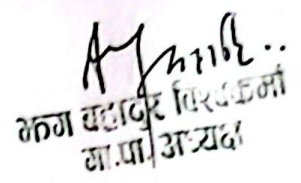 झग बहादुर विश्वकर्मा
गा.पा. अध्यक्ष